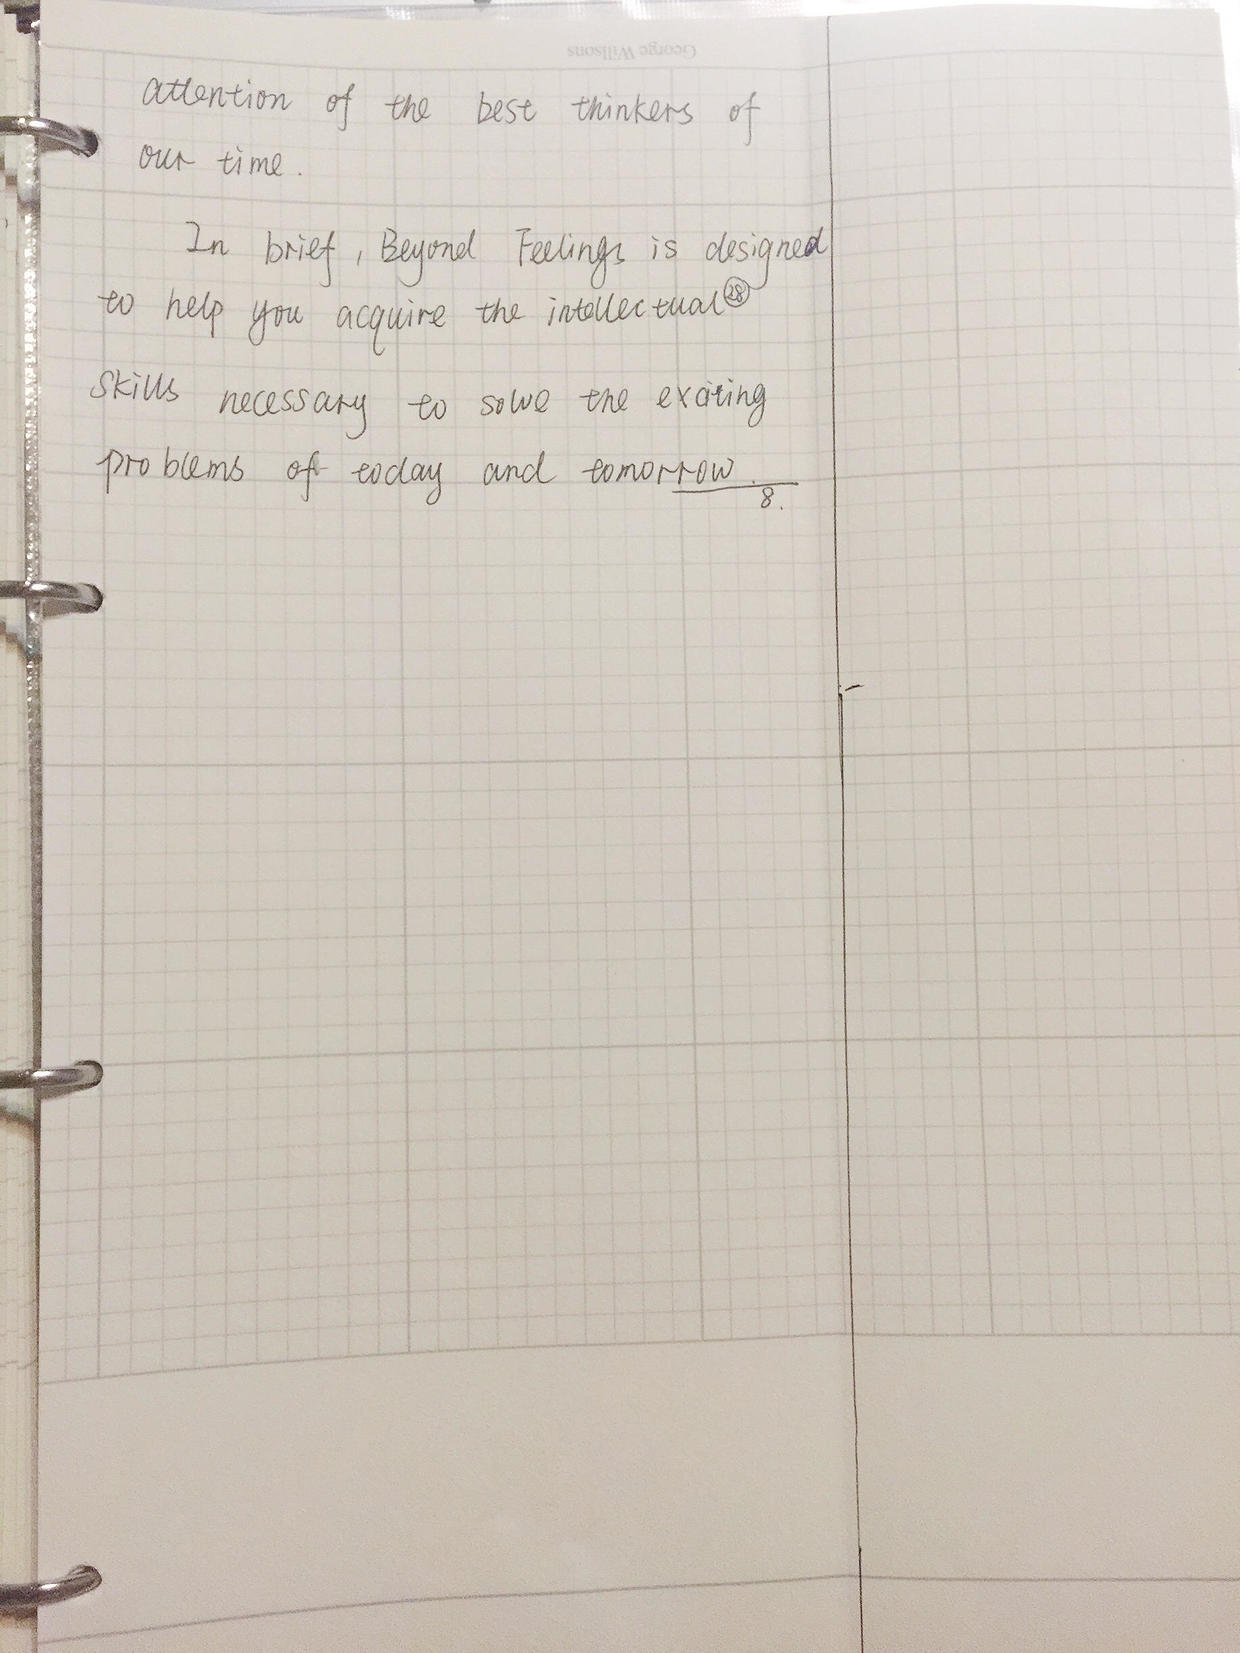 George Willsons
attention of the best thinkers of
our time.
In brief, Beyond Feelings is designed
to help you acquire the intellectual㉘
skills necessary to solve the exciting
problems of today and tomorrow.
8.